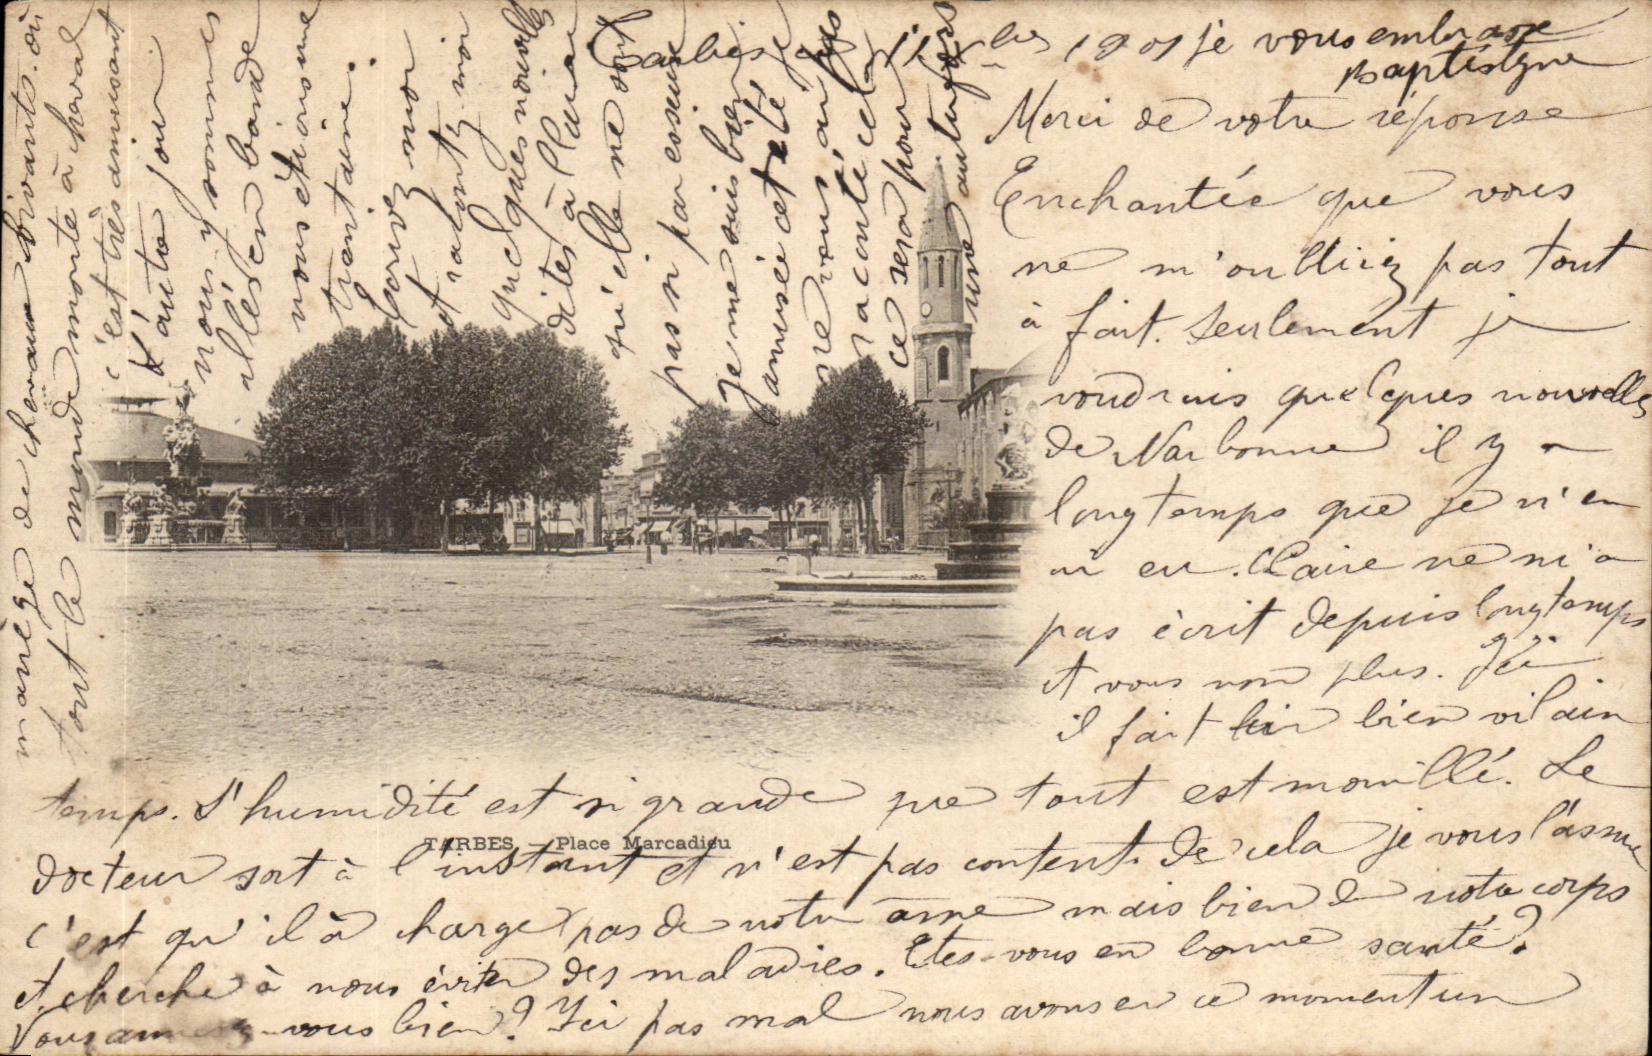 Tarbes 1901 je vous embrasse
Baptistine
Merci de votre réponse
Enchantée que vous
ne m'oubliiez pas tout
à fait. Seulement je
voudrais quelques nouvelles
de Narbonne il y a
longtemps que je n'en
ai eu. Claire ne m'a
pas écrit depuis longtemps
et vous non plus. Ici
il fait bien vilain
temps. L'humidité est si grande que tout est mouillé. Le
TARBES — Place Marcadieu
docteur sort à l'instant et n'est pas content de cela je vous l'assure
c'est qu'il à charge pas de notre âme mais bien de notre corps
et cherche à nous éviter des maladies. Etes-vous en bonne santé?
Vous amusez-vous bien? Ici pas mal nous avons en ce moment un
manège de chevaux vivants. où
tout le monde monte à cheval
c'est très amusant
L'autre jour
nous y sommes
allés en bande
nous étions une
trentaine.
Ecrivez moi
et racontez moi
quelques nouvelles
dites à
qu'elle ne soit
pas si paresseuse
Je me suis bien
amusée cet été
je vous aurais
raconté cela
ce sera pour
une autre fois